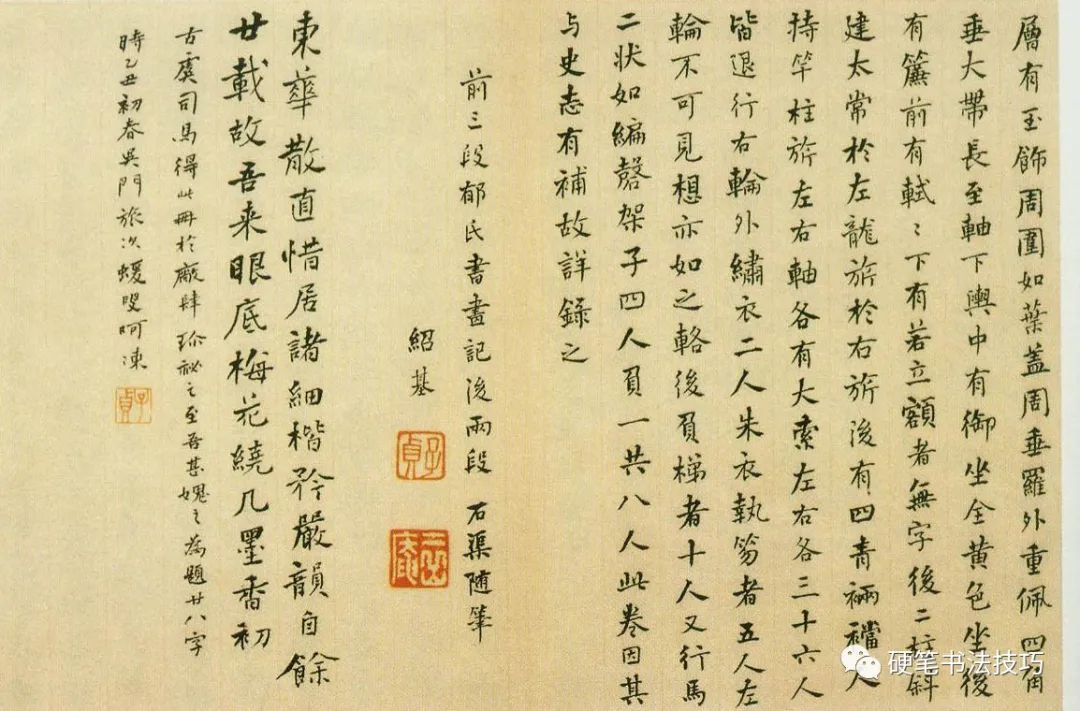 層有玉飾周圍如葉蓋周垂羅外重佩四角
垂大帶長至軸下輿中有御坐全黄色坐後
有簾前有軾〻下有若立額者無字後二柱斜
建太常於左龍旂於右旂後有四青裲襠人
持竿柱旂左右軸各有大索左右各三十六人
皆退行右輪外繡衣二人朱衣執笏者五人左
輪不可見想亦如之輅後負梯者十人又行馬
二状如編磬架子四人負一共八人此卷因其
与史志有補故詳錄之
前三段郁氏書畫記後兩段石渠随筆
紹基
子貞
東華散直惜居諸細楷矜嚴韻自餘
廿載故吾来眼底梅花繞几墨香初
古虞司馬得此冊於廠肆珎祕之至吾甚媿之為題廿八字
時乙丑初春吳門旅次蝯叟呵凍
子貞
硬笔书法技巧